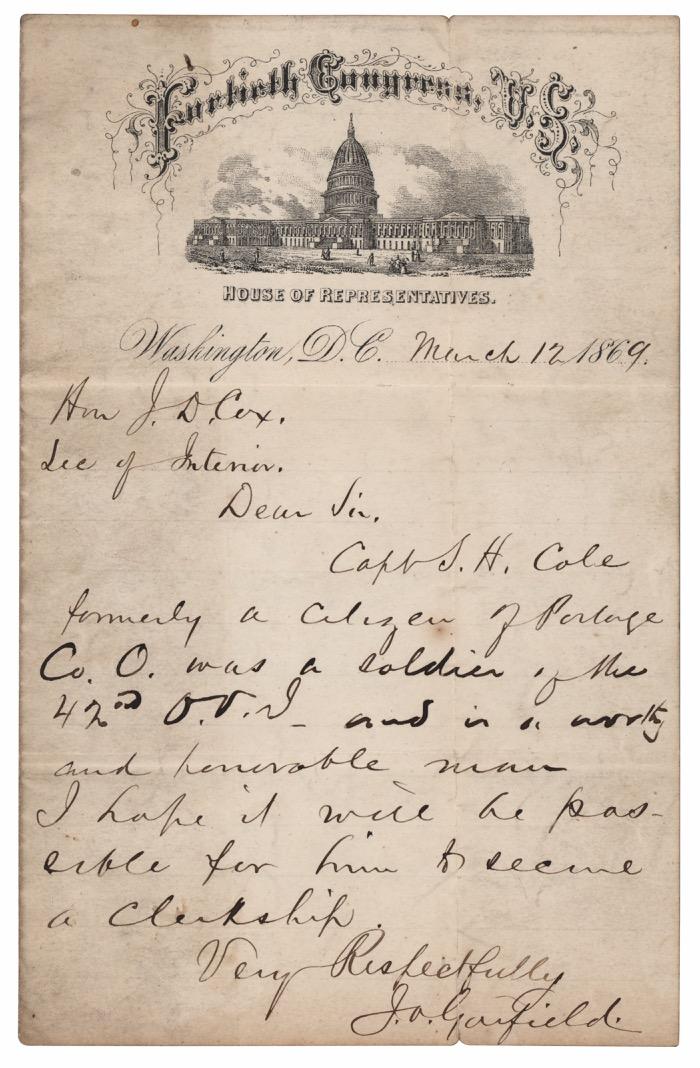 Fortieth Congress, U.S.
HOUSE OF REPRESENTATIVES.
Washington, D.C. March 12 1869.
Hon J. D. Cox.
Sec of Interior.
Dear Sir.
Capt S. H. Cole
formerly a citizen of Portage
Co. O. was a soldier of the
42nd O.V.I– and is a worthy
and honorable man
I hope it will be pos-
sible for him to secure
a clerkship.
Very Respectfully
J. A. Garfield.